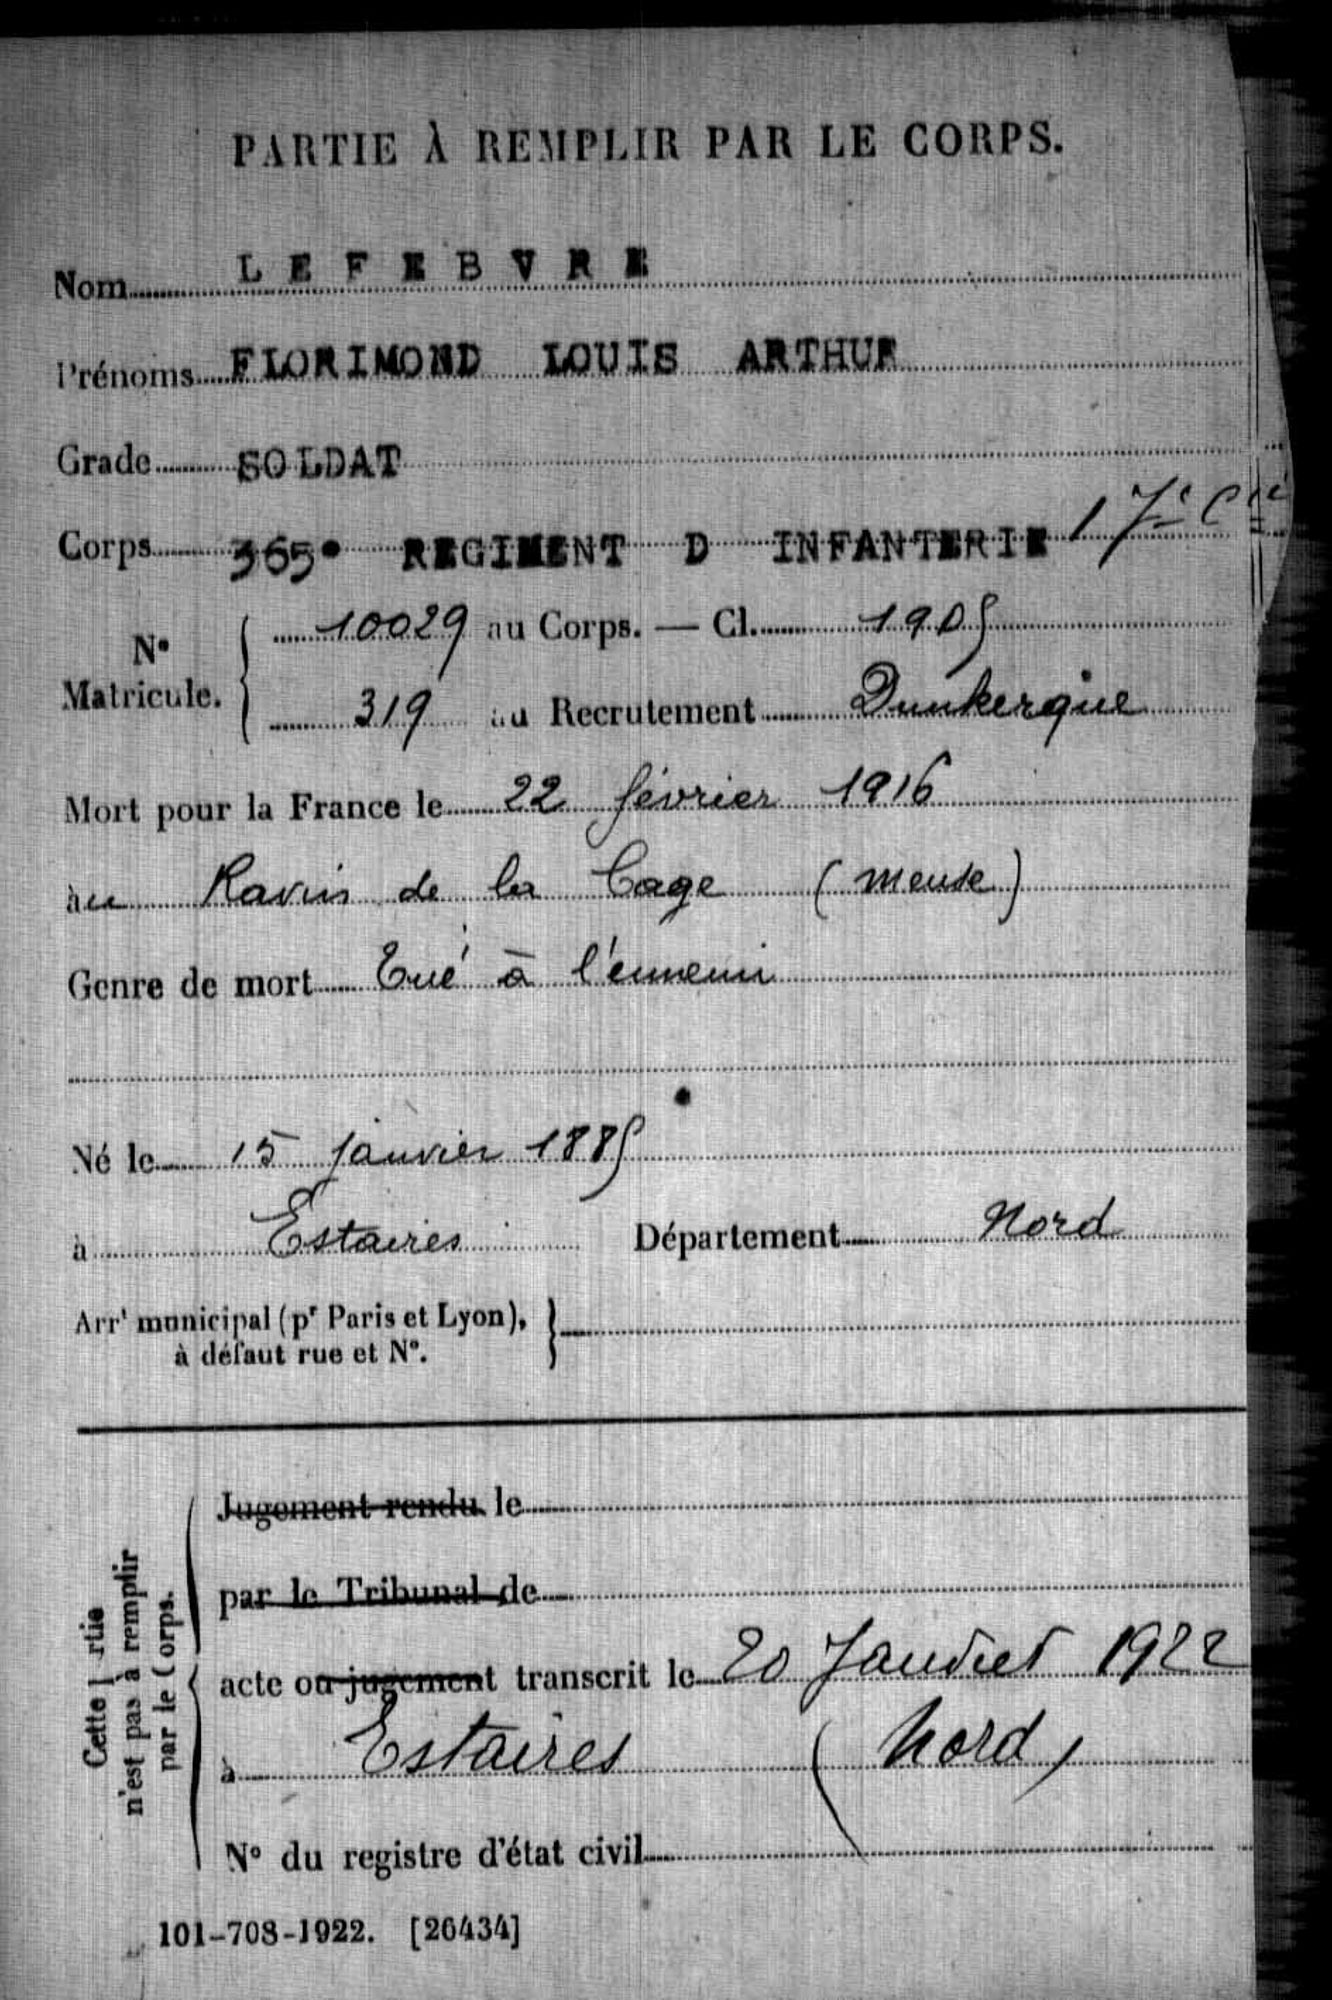 PARTIE À REMPLIR PAR LE CORPS.
Nom LEFEBVRE
Prénoms FLORIMOND LOUIS ARTHUR
Grade SOLDAT
Corps 365e REGIMENT D INFANTERIE 17e Cie
No Matricule. 10029 au Corps. — Cl. 1905
319 au Recrutement Dunkerque
Mort pour la France le 22 février 1916
au Ravin de la Cage (Meuse)
Genre de mort Tué à l'ennemi
Né le 15 janvier 1885
à Estaires Département Nord
Arrt municipal (pr Paris et Lyon),
à défaut rue et No.
Jugement rendu le
par le Tribunal de
acte ou jugement transcrit le 20 Janvier 1922
à Estaires (Nord)
No du registre d'état civil
Cette partie
n'est pas à remplir
par le Corps.
101-708-1922. [26434]